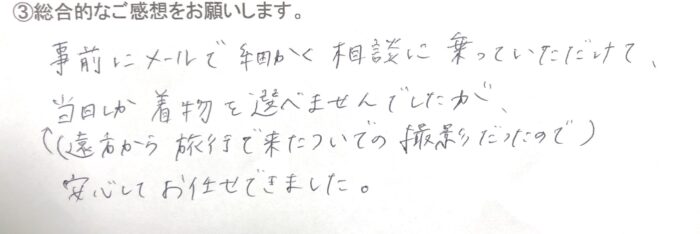 ③総合的なご感想をお願いします。
事前にメールで細かく相談に乗っていただけて、
当日しか着物を選べませんでしたが、
(遠方から旅行で来たついでの撮影だったので)
安心してお任せできました。